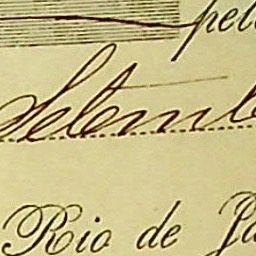 pel
Setemb
Rio de Ja